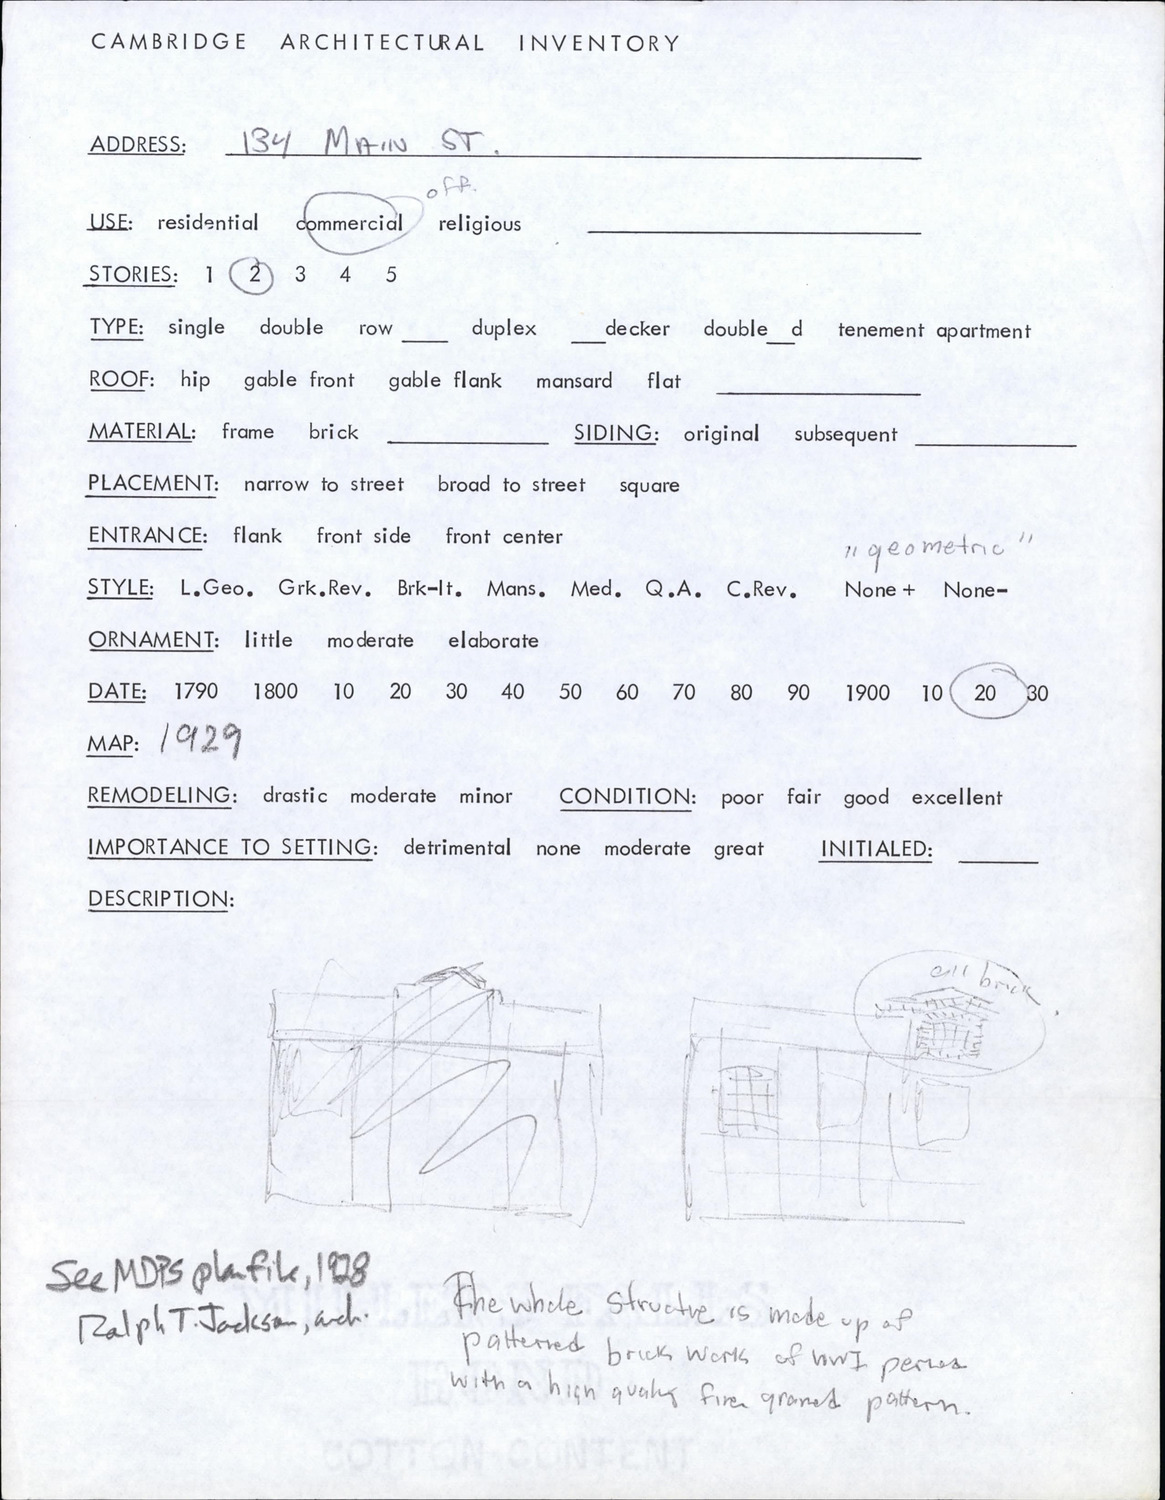 CAMBRIDGE ARCHITECTURAL INVENTORY
ADDRESS: 134 MAIN ST.
off.
USE: residential commercial religious
STORIES: 1 2 3 4 5
TYPE: single double row ___ duplex ___decker double__d tenement apartment
ROOF: hip gable front gable flank mansard flat
MATERIAL: frame brick SIDING: original subsequent
PLACEMENT: narrow to street broad to street square
ENTRANCE: flank front side front center
"geometric"
STYLE: L.Geo. Grk.Rev. Brk-It. Mans. Med. Q.A. C.Rev. None+ None-
ORNAMENT: little moderate elaborate
DATE: 1790 1800 10 20 30 40 50 60 70 80 90 1900 10 20 30
MAP: 1929
REMODELING: drastic moderate minor CONDITION: poor fair good excellent
IMPORTANCE TO SETTING: detrimental none moderate great INITIALED:
DESCRIPTION:
all brick
See MDPS planfile, 1928
Ralph T. Jackson, arch.
The whole structure is made up of
patterned brick work of WWI period
with a high quality fine grained pattern.
COTTON CONTENT